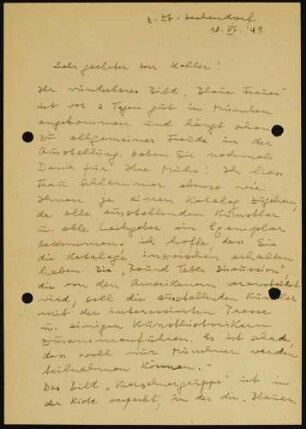 z. Zt. Hechendorf
18. VI. 49
Sehr geehrter Herr Keller!
Ihr wunderbares Bild „Blaue Frauen"
ist vor 3 Tagen gut in München
angekommen und hängt schon
zu allgemeiner Freude in der
Ausstellung. Haben Sie nochmals
Dank für Ihre Mühe! Ich liess
Frau Schlemmer ebenso wie
Ihnen je einen Katalog zugehen,
da alle ausstellenden Künstler
u. alle Leihgeber ein Exemplar
bekommen. Ich hoffe, dass Sie
die Kataloge inzwischen erhalten
haben. Die „Round Table Discussion",
die von den Amerikanern veranstaltet
wird, soll die ausstellenden Künstler
mit der interessierten Presse
u. einigen Kunsthistorikern
zusammenführen. Es ist schade,
dass wohl nur Münchner werden
teilnehmen können. -
Das Bild ist in
der Kiste verpackt, in der die „Blauen